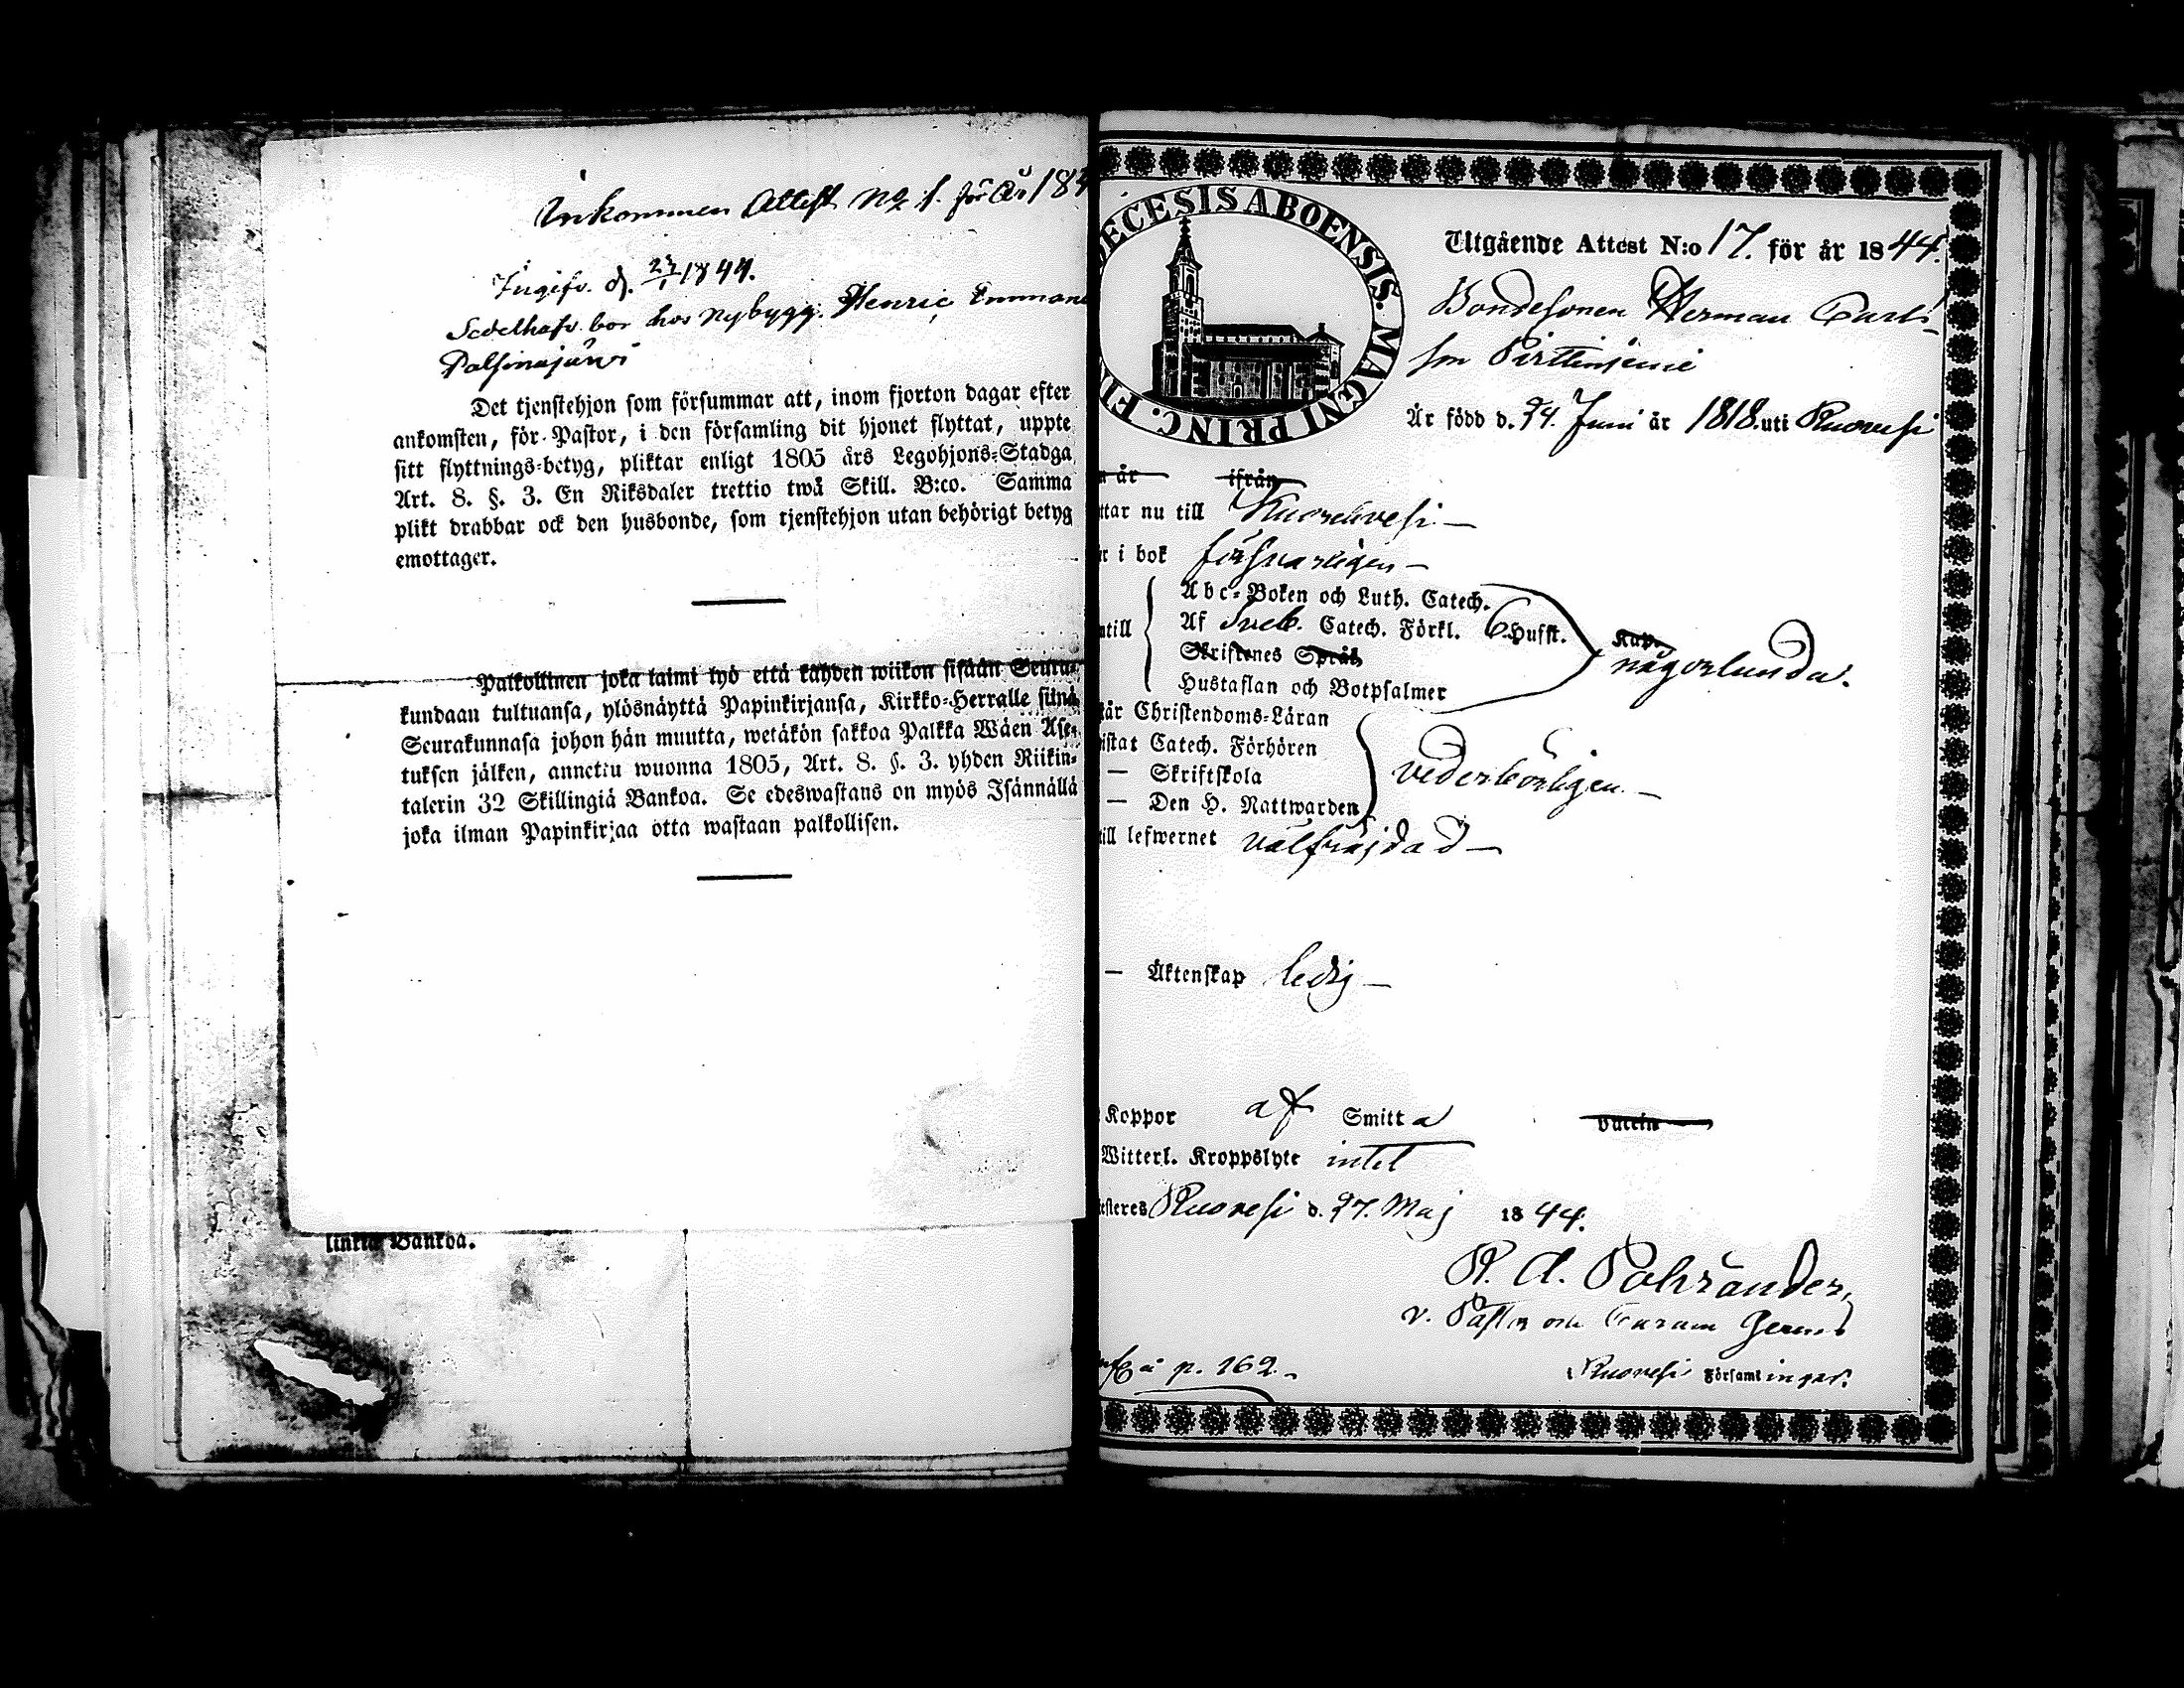 Inkommen Attest No 1. för År 184
Ingifv. d. 23/1 1844.
Sedelhafv. bor hos nybygg. Henric Emman
Palsinajärvi
Det tjenstehjon som försummar att, inom fjorton dagar efter
ankomsten, för Pastor, i den församling dit hjonet flyttat, uppte
sitt flyttnings-betyg, pliktar enligt 1805 års Legohjons-Stadga
Art. 8. §. 3. En Riksdaler trettio twå Skill. B:co. Samma
plikt drabbar ock den husbonde, som tjenstehjon utan behörigt betyg
emottager.
Palkollinen joka laimi lyö että kahden wiikon sisään Seura-
kundaan tultuansa, ylösnäyttä Papinkirjansa, Kirkko-Herralle siinä
Seurakunnasa johon hän muutta, wetäkön sakkoa Palkka Wäen Ase-
tuksen jälken, annettu wuonna 1805, Art. 8. §. 3. yhden Riikin-
talerin 32 Skillingiä Bankoa. Se edeswastans on myös Isännällä
joka ilman Papinkirjaa otta wastaan palkollisen.
linkiä Bankoa.
ECESIS ABOENSIS. MAGNI PRINC. FI
Utgående Attest N:o 17. för år 1844.
Bondesonen Herman Carls
son Pirttiniemi
Är född d. 24. Juni år 1818. uti Ruovesi
år ifrån
ttar nu till Kuorehvesi
r i bok försvarligen
till
Abc-Boken och Luth. Catech.
Af Sveb. Catech. Förkl. 6. Hufst. Kap.
Skriftenes Språk
Hustaflan och Botpsalmer
någorlunda.
står Christendoms-Läran
istat Catech. Förhören
— Skriftskola
— Den H. Nattwarden
vederbörligen.
till lefwernet välfräjdad
— Äktenskap ledig
Koppor af Smitta Vaccin
Witterl. Kroppslyte intet
esteres Ruovesi d. 27. Maj 1844.
R. A. Pohrander,
v. Pastor och Curam Gerens
å p. 162.
Ruovesi Församlingar.